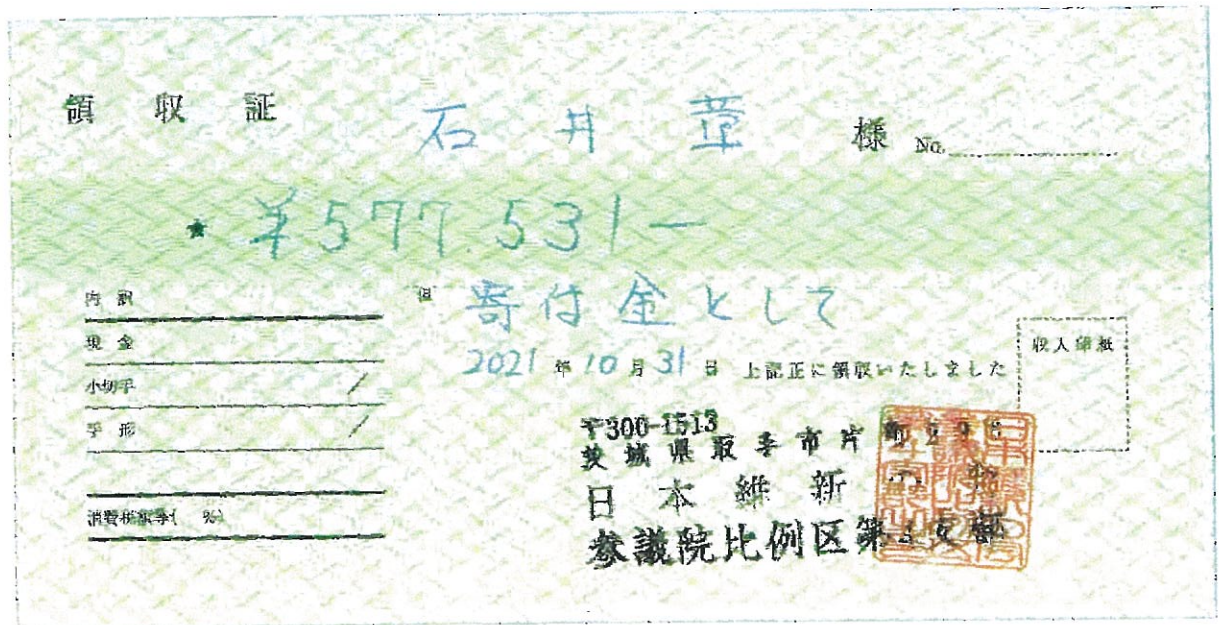 領収証 石井章 様 No.
★ ¥577.531−
内訳
但 寄付金として
現金
2021年10月31日 上記正に領収いたしました
収入印紙
小切手 /
手形 /
消費税額等( %)
〒300-1513
茨城県取手市片
日本維新
参議院比例区第